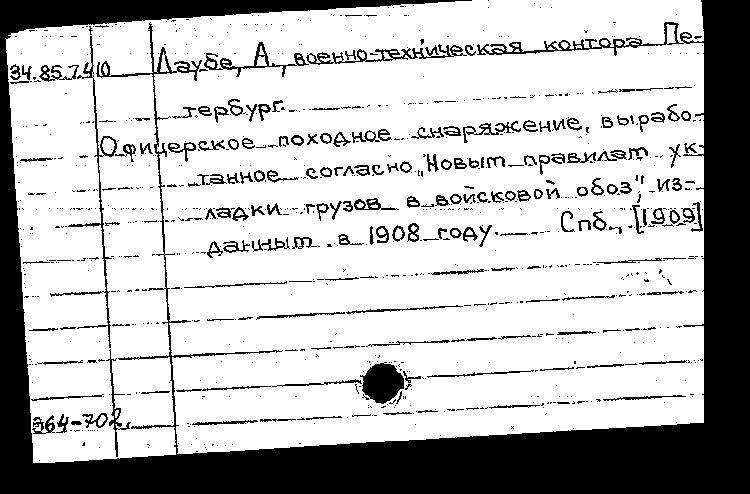 34.85.7.410 Лаубе, А., военно-техническая контора Пе-
тербург.
Офицерское походное снаряжение, вырабо-
танное согласно „Новым правилам ук-
ладки грузов в войсковой обоз", из-
данным в 1908 году. Спб., [1909]
364-702.